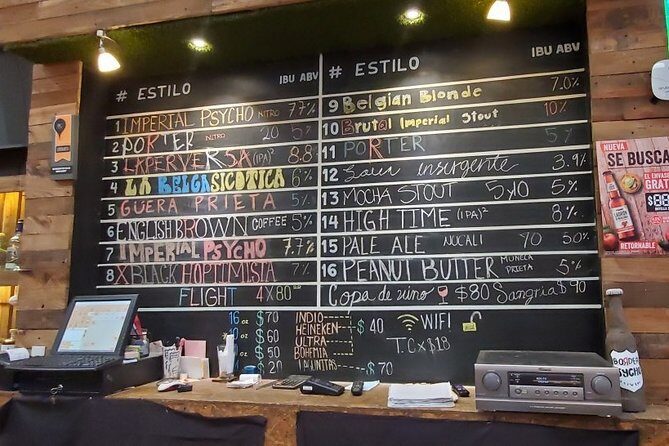 # ESTILO IBU ABV
1 IMPERIAL PSYCHO NITRO 7.7%
2 PORTER NITRO 20 5%
3 LAPERVERSA (IPA)² 8.8
4 LA BELGASICOTICA 6%
5 GÜERA PRIETA 5%
6 ENGLISH BROWN COFFEE 5%
7 IMPERIAL PSYCHO 7.7%
8 XBLACK HOPTIMISTA 7%
FLIGHT 4X80
# ESTILO IBU ABV
9 Belgian Blonde 7.0%
10 Brutal Imperial Stout 10%
11 PORTER 5%
12 Saur insurgente 3.9%
13 MOCHA STOUT 5%
14 HIGH TIME (IPA)² 8%
15 PALE ALE NOCALI YO 50%
16 PEANUT BUTTER MUÑECA PRIETA 5%
Copa de vino $80 Sangria $90
16 oz $70
$60
$50
$20
INDIO
HEINEKEN
ULTRA
BOHEMIA
LAGUNITAS
$40
$70
WIFI
T.C x $18
NUEVA
SE BUSCA
EL ENVASE
GRATIS
RETORNABLE
BORDER
PSYCHO